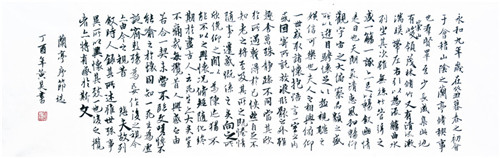 永和九年歲在癸丑暮春之初會
于會稽山陰之蘭亭修禊事
也群賢畢至少長咸集此地
有崇山峻領茂林修竹又有清流激
湍暎帶左右引以為流觴曲水
列坐其次雖無絲竹管弦之
盛一觴一詠亦足以暢敘幽情
是日也天朗氣清惠風和暢仰
觀宇宙之大俯察品類之盛
所以遊目騁懷足以極視聽
之娛信可樂也夫人之相與俯仰
一世或取諸懷抱悟言一室之內
或因寄所託放浪形骸之外雖
趣舍萬殊靜躁不同當其欣
於所遇暫得於己快然自足不
知老之將至及其所之既惓情
隨事遷感慨係之矣向之所
欣俛仰之間以為陳迹猶不
能不以之興懷況脩短隨化終
期於盡古人云死生亦大矣豈
不痛哉每攬昔人興感之由
若合一契未嘗不臨文嗟悼不
能喻之於懷固知一死生為虛
誕齊彭殤為妄作後之視今
亦由今之視昔悲夫故列
敘時人錄其所述雖世殊事
異所以興懷其致一也後之攬
者亦將有感於斯文
蘭亭序
丁酉年黃書